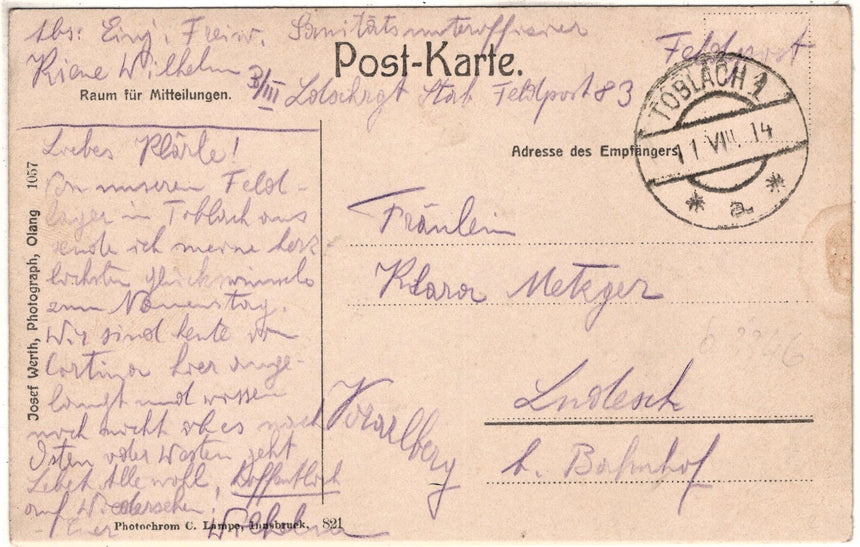 Abs: Einj. Freiw. Sanitätsunteroffizier
Feldpost
Wilhelm
Post-Karte.
3/III
Stab Feldpost 83
Raum für Mitteilungen.
TOBLACH 1
11 VIII. 14
* a *
Adresse des Empfängers
Liebes Klärle!
Von unserem Feld-
lager in Toblach aus
sende ich meine herz
lichsten Glückwünsche
zum Namenstag.
Wir sind heute von
Cortina hier ange-
langt und wissen
noch nicht ob es nach
Osten oder Westen geht
Lebet Alle wohl, Hoffentlich
auf Wiedersehen!
Euer Wilhelm
Fräulein
Klara Metzger
Ludesch
b. Bahnhof
Vorarlberg
Josef Werth, Photograph, Olang 1057
Photochrom C. Lampe, Innsbruck. 821